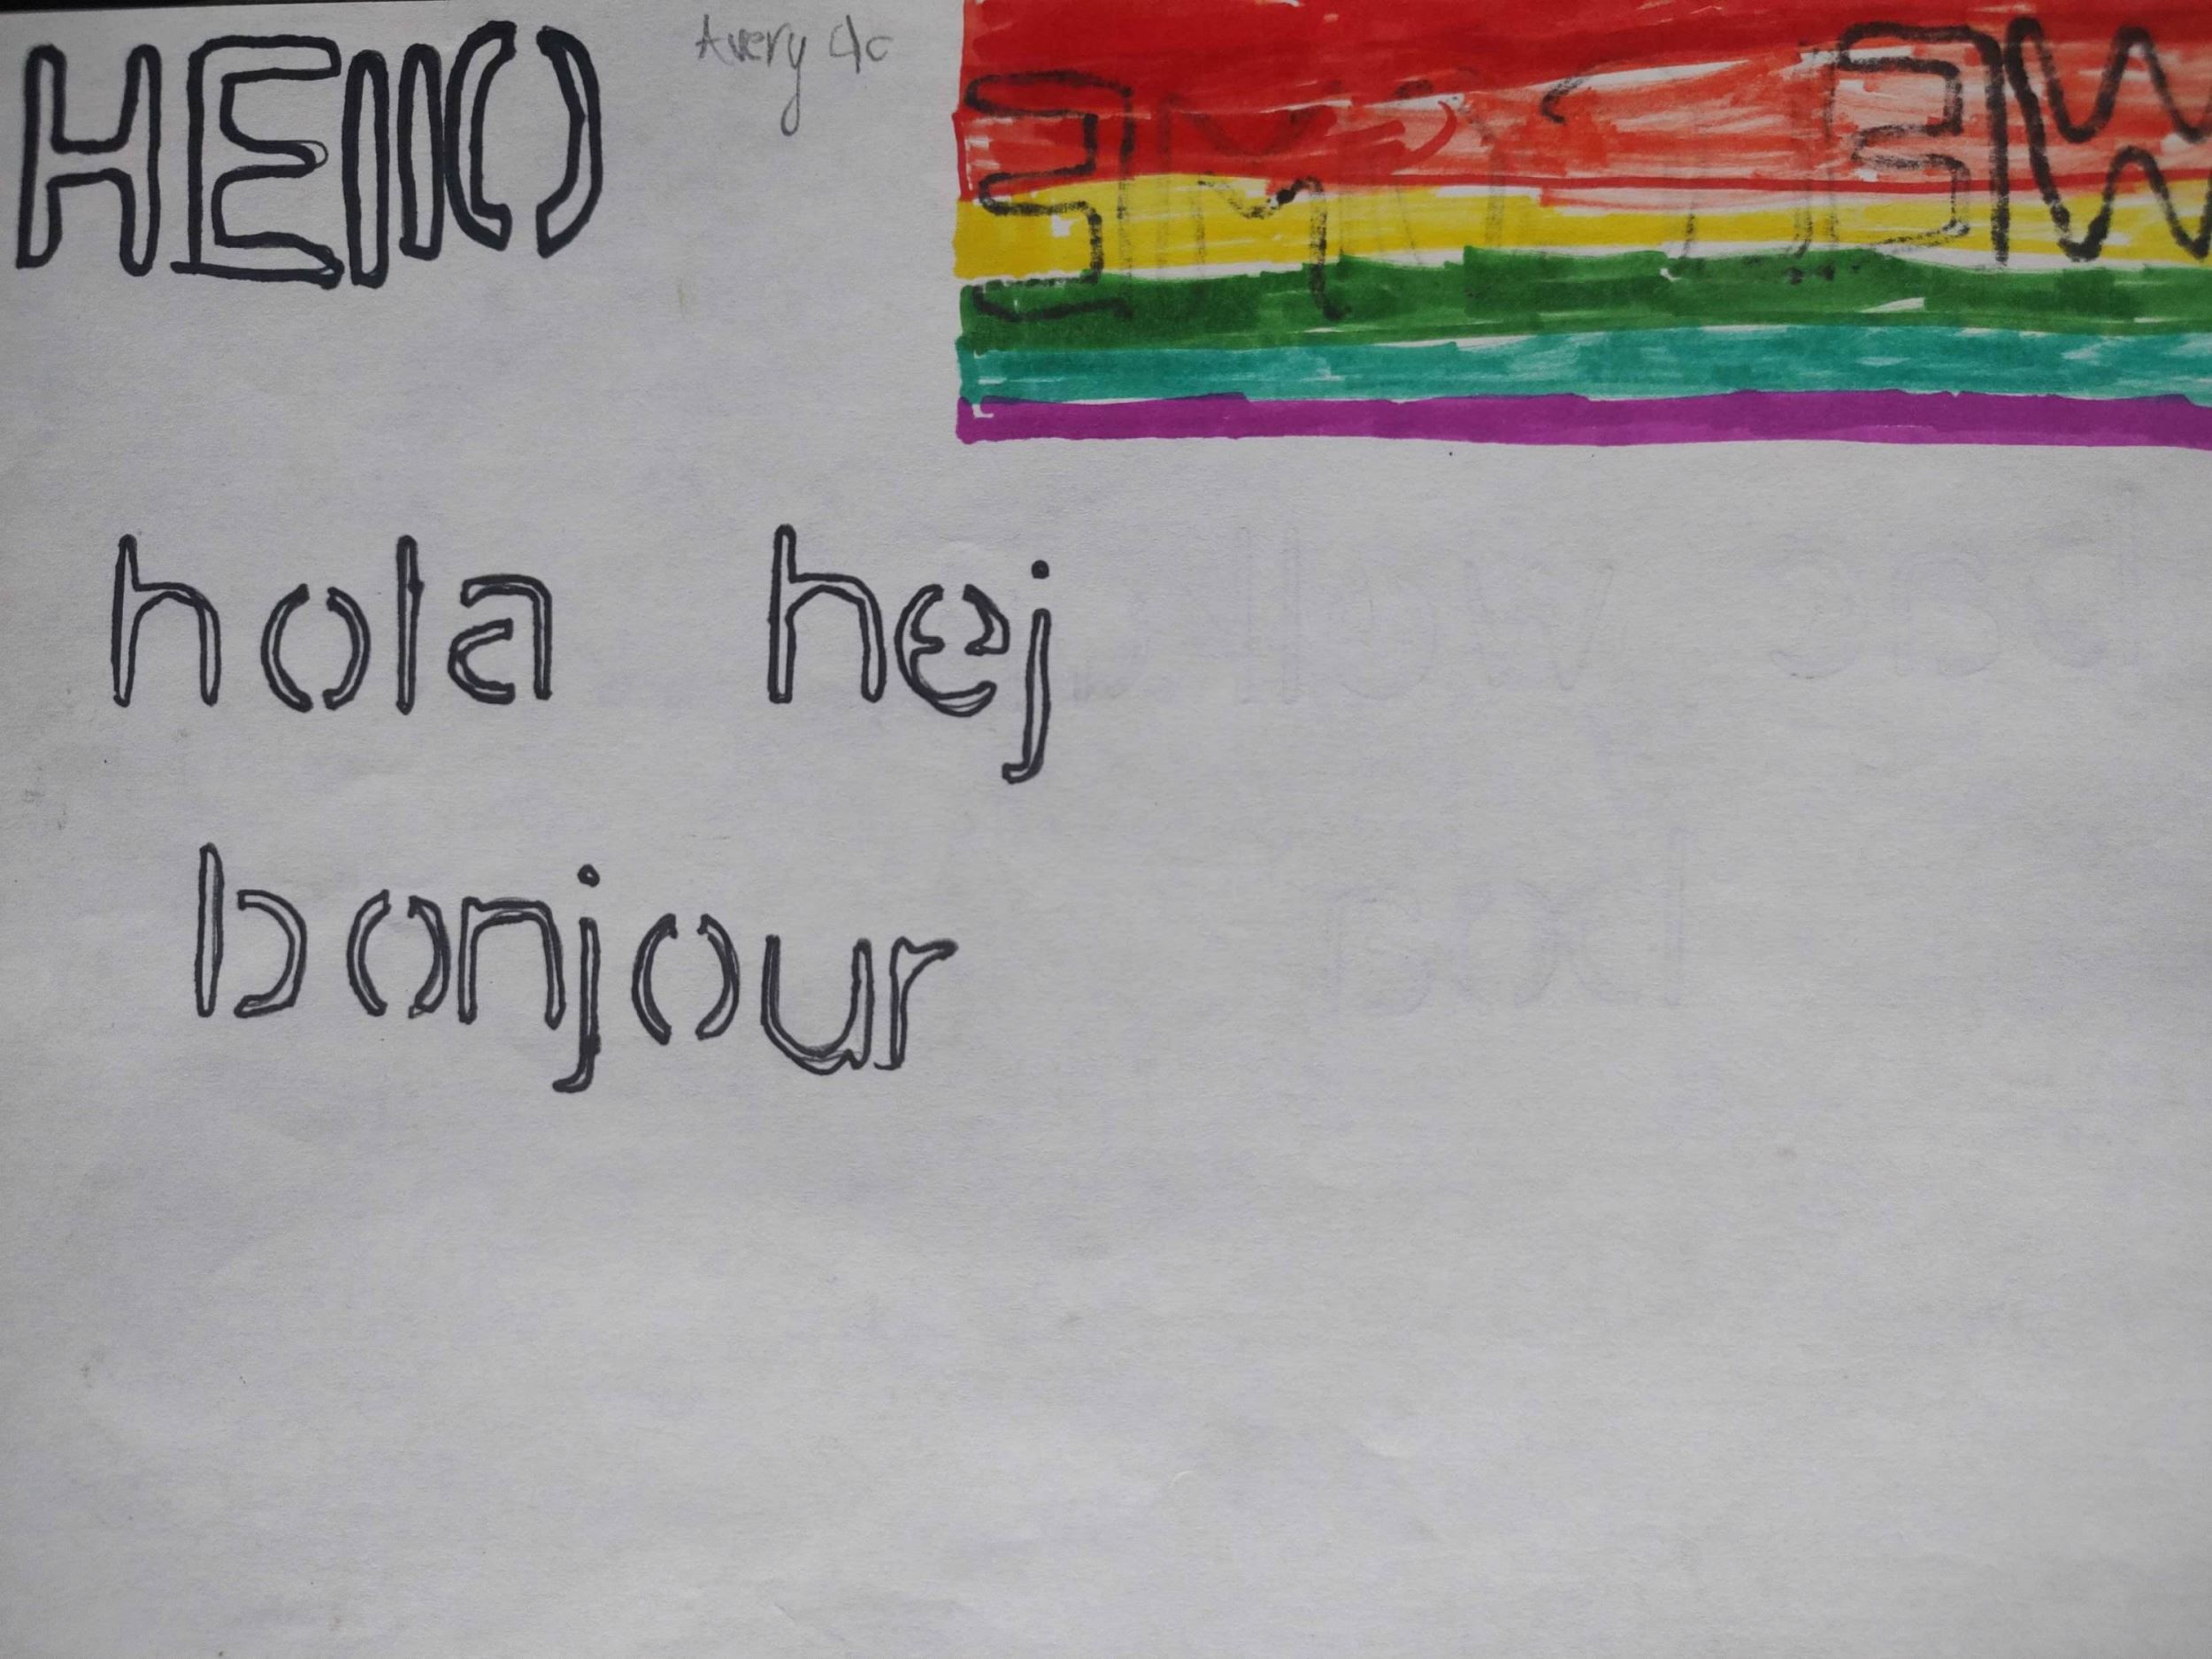 HEllO Avery 4c
hola hej
bonjour